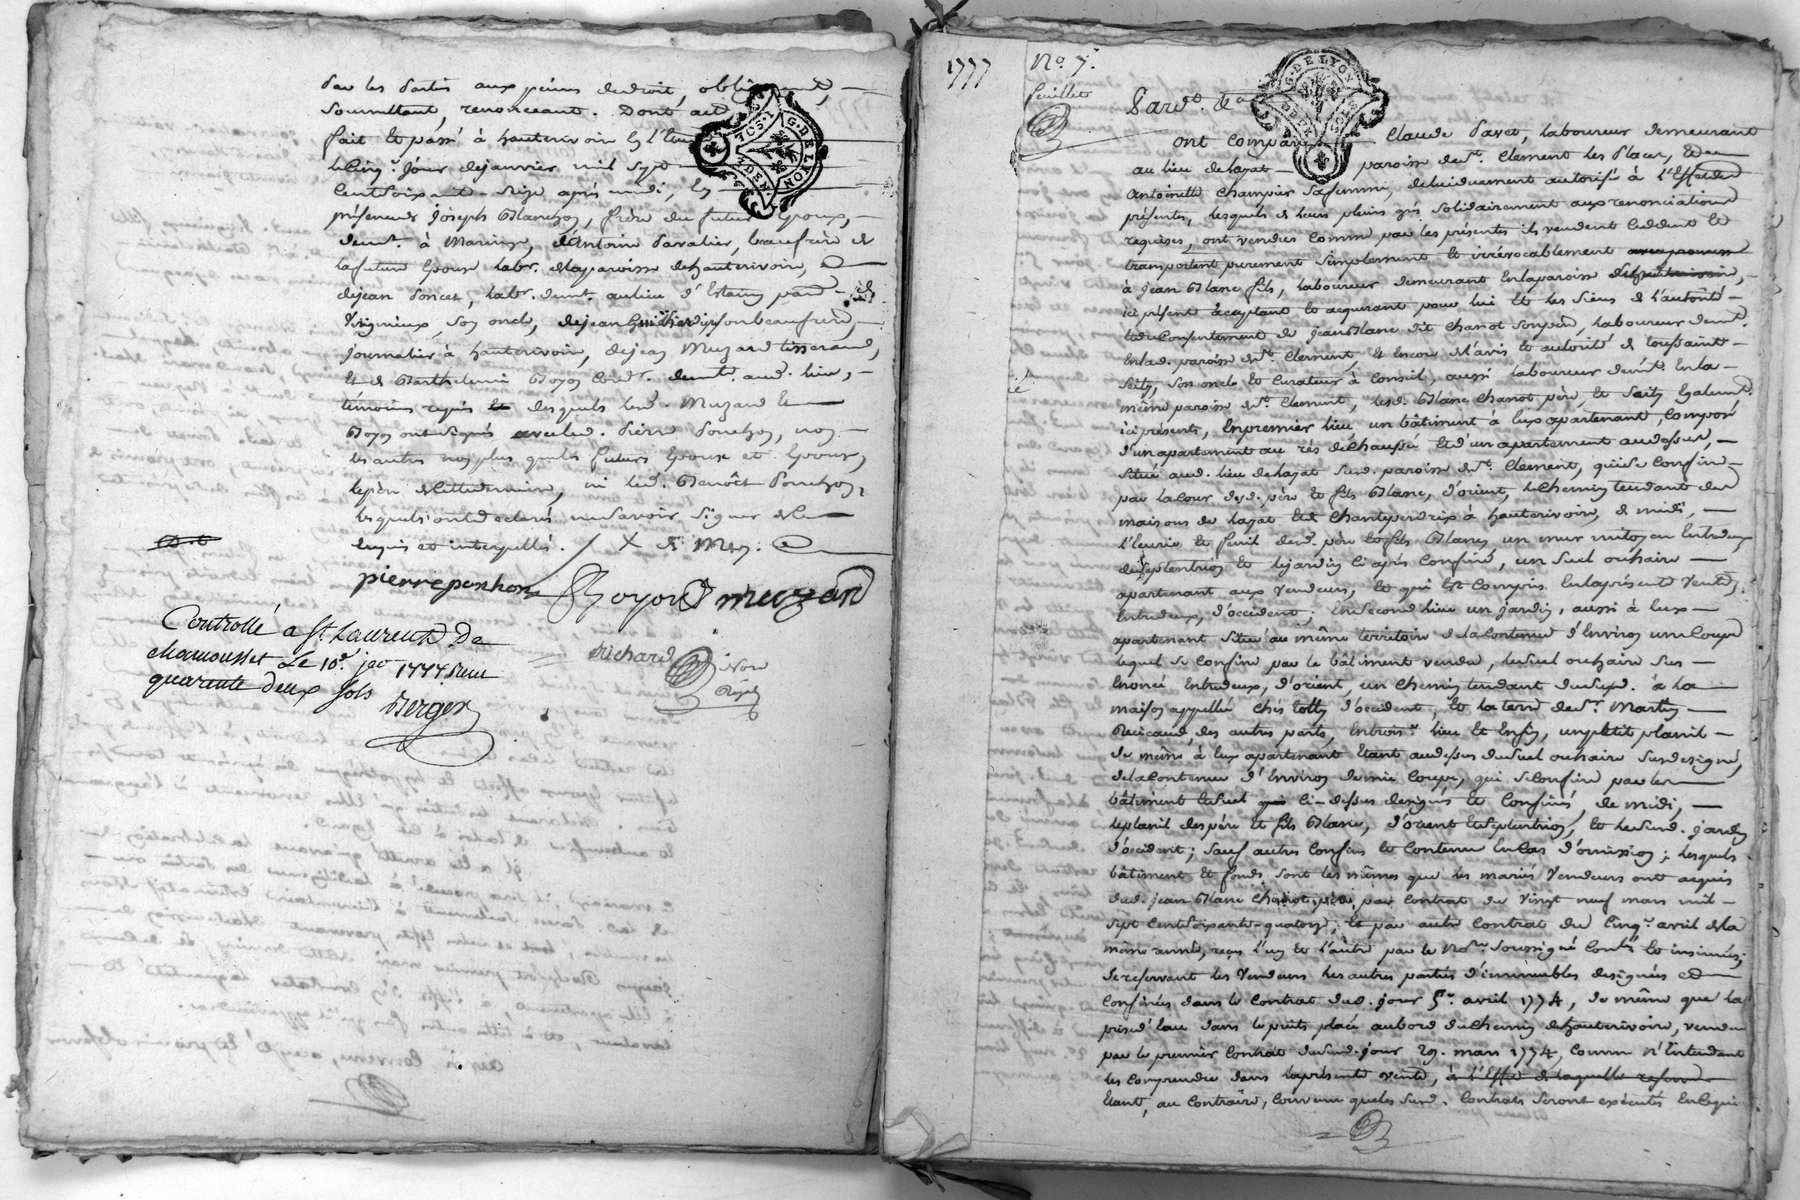 par les parties aux peines de droit, obligeant,
soumettant, renonceant. Dont acte
fait et passé à hauterivoir en l'Etude
le cinq.e jour de janvier mil sept
cent soixante-seize après midi, En
présence de joseph Blanchon, frère du futur Epoux,
demt. à Maringe, d'Antoine Pavalier, beaufrère de
la future Epouse labr. de la paroisse de hauterivoir,
de jean Poncet, labr. demt. au lieu d' pard. de
Virignieux, son oncle, de jean son beaufrère,
journalier à hauterivoir, de jean Muzard tisserand,
Et de Barthelemi Boyon cord.r demt. aud. lieu,
témoins requis et desquels lesd. Muzard et
Boyon ont signés avec led. Pierre Ponchon, non
les autres non plus que les futurs Epoux et Epouse,
le père de cette derniere, ni led. Benoît Ponchon,
lesquels ont declarés ne savoir signer de ce
enquis et interpellés. / X de Msn:
pierre ponchon Boyon muzard
richard No.re
Royal
Controllé a St. Laurent De
chamousset Le 10.e jer 1777 Reçu
quarante deux sols
Berger
TCS. G. DE LYON DEN.
1777
No. 7.
feuillets
G. DE LYON DEUX SOLS
Pardt. Le
ont comparu Claude Pavet, laboureur demeurant
au lieu de hazat paroisse de St. Clement les Places, et
Antoinette Champier sa femme, de lui duement autorisée à l'Effet des
présentes, lesquels de leurs pleins grés solidairement aux renonciations
requises, ont vendus comme par les présentes ils vendent ceddent et
transportent purement simplement et irrévocablement
à jean Blanc fils, laboureur demeurant en la paroisse de hauterivoir,
ici présent acceptant et acquerant pour lui et les siens de l'autorité
et du consentement de jean Blanc dit Chanot son père, laboureur demt.
en lad. paroisse de St. Clement, et encore de l'avis et autorité de toussaint
Seity, son oncle et curateur à conseil, aussi laboureur demt. en la
même paroisse de St. Clement, lesd. Blanc Chanot père, et Seity Egalemt.
ici présents, En premier lieu un bâtiment à Eux appartenant, composé
d'un appartement au rés de chaussée et d'un apartement au dessus,
situé aud. lieu de hazat susd. paroisse de St. Clement, qui se confine
par la cour desd. père et fils Blanc, d'orient, le chemin tendant des
maisons de hazat et de Chanteperdrix à hauterivoir, de midi,
l'Ecurie et fenil desd. père et fils Blanc, un mur mitoyen Entredeux
de septentrion et le jardin ci après confiné, un suel ou haire
appartenant aux vendeurs, et qui est compris en la présente vente,
Entredeux, d'occident; En second lieu un jardin, aussi à Eux
appartenant situé au même territoire de la contenue d'Environ une coupe
lequel se confine par le bâtiment vendu, le suel ou haire sus
Enoncé Entredeux, d'orient, un chemin tendant dususd. à la
maison appellée chés tolly d'occident, et la terre de Sr. Martin
Recicaud, des autres parts, En trois.e lieu Et Enfin, un petit planil
de même à Eux apartenant Etant au dessus du suel ou haire susdesigné,
de la contenue d'Environ demie coupe, qui se confine par les
bâtiment et suel ci-dessus designés et confinés, de midi,
le planil des père et fils Blanc, d'orient et septentrion, et le susd. jardin
d'occident; sauf autres confins et contenue En cas d'omission; lesquels
bâtiment et fonds sont les mêmes que les mariés vendeurs ont acquis
dud. jean Blanc Chanot père, par contrat du vingt neuf mars mil
sept cent soixante-quatorze, et par autre contrat du cinq.e avril de la
même année, reçus l'un et l'autre par le No.re soussigné Contlés. et insinués;
se reservant les Vendeurs les autres parties d'immeubles designées et
confinées dans le contrat dud. jour 5.e avril 1774, de même que la
prise d'Eau dans le puits placé au bord du chemin de hauterivoir, vendue
par le premier contrat du susd. jour 29. mars 1774, comme n'Entendant
les comprendre dans la présente vente, à l'Effet de laquelle reserve
Etant, au contraire, convenu que les susd. contrats seront executés En ce qui